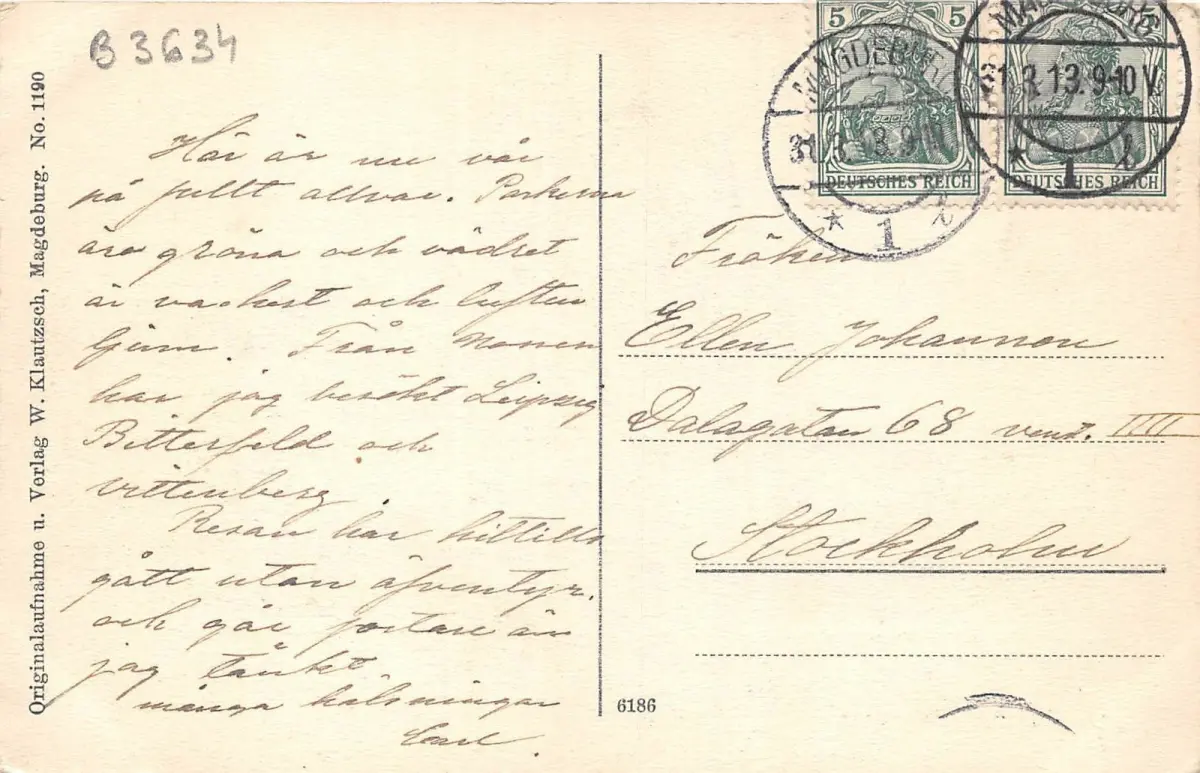 B 3634
Originalaufnahme u. Verlag W. Klautzsch, Magdeburg. No. 1190
Här är nu vår
på fullt allvar. Parkerna
äro gröna och vädret
är vackert och luften
ljum. Från
har jag besökt Leipzig
Bitterfeld och
Vittenberg.
Resan har hittills
gått utan äfventyr.
och går fortare än
jag tänkt
många hälsningar
Carl.
5 5
5
DEUTSCHES REICH
DEUTSCHES REICH
MAGDEBURG
31.3.13.9-10V.
* 1 l
MAGDEBURG
31.3.13.9-10V.
* 1 l
Fröken
Ellen Johannson
Dalagatan 68 IIII
Stockholm
6186